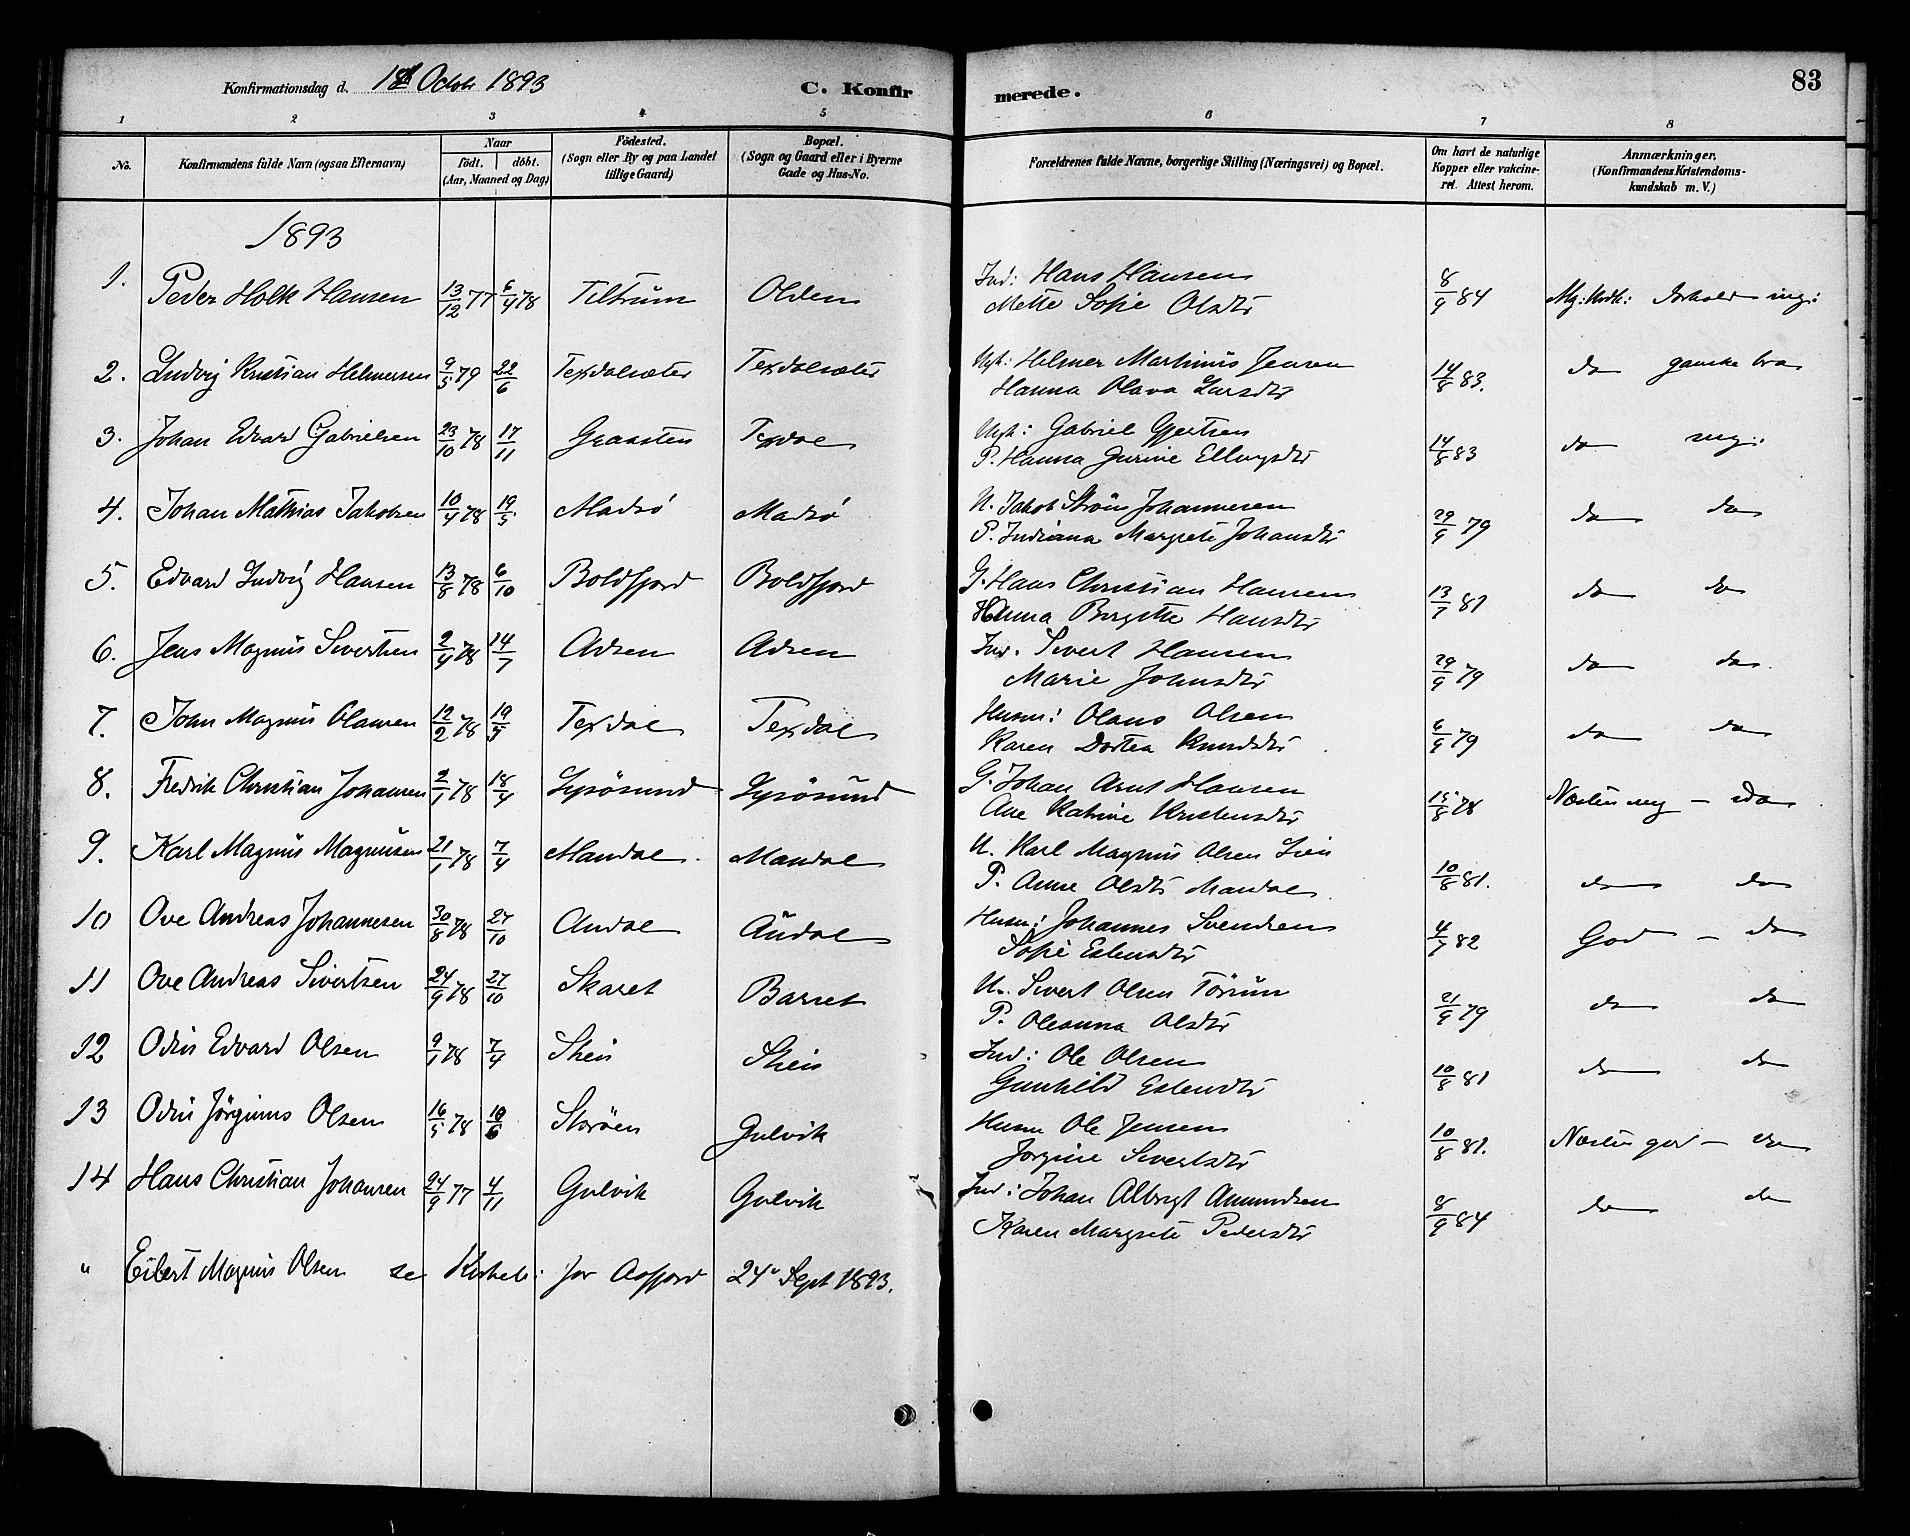 Konfirmationsdag d. 1st Octobr 1893 C. Konfirmerede. 83
1 2 3 4 5 6 7 8
No. Konfirmandens fulde Navn (ogsaa Efternavn) Naar födt. döbt. (Aar, Maaned og Dag) Födested. (Sogn eller By og paa Landet tillige Gaard) Bopæl. (Sogn og Gaard eller i Byerne Gade og Hus-No. Forældrenes fulde Navne, borgerlige Stilling (Næringsvei) og Bopæl. Om havt de naturlige Kopper eller vakcineret. Attest herom. Anmærkninger. (Konfirmandens Kristendomskundskab m. V.)
1893
1. Peder Holk Hansen 13/12 77 6/4 78 Tiltrum Olden Ind: Hans Hansen
Mette Sofie Olsdtr 8/9 84 Mg: Krdk: Forhold mg:
2. Ludvig Kristian Helmersen 9/5 79 22/6 Texdalsæter Texdalsæter Ugt: Helmer Martinus Jensen
Hanna Olava Larsdtr 14/8 83. do ganske bra
3. Johan Edvard Gabrielsen 23/10 78 17/11 Graasten Texdal Ugt: Gabriel Gjertsen
P. Hanna Gurine Ellingsdtr 14/8 83 do mg:
4. Johan Mathias Jakobsen 10/4 78 19/5 Madsö Madsö U. Jakob Ström Johannesen
P. Indiana Margrete Johansdtr 29/9 79 do do
5. Edvard Ludvig Hansen 13/8 78 6/10 Boldfjord Boldfjord G. Hans Christian Hansen
Hanna Bergitte Hansdtr 13/7 81 do do
6. Jens Magnus Sivertsen 2/4 78 14/7 Adsen Adsen Ind. Sivert Hansen
Marie Johnsdtr 29/9 79 do do
7. John Magnus Olausen 12/2 78 19/5 Texdal Texdal Husm: Olaus Olsen
Karen Dortea Knudsdtr 6/9 79 do do
8. Fredrik Christian Johansen 2/1 78 18/4 Lysösund Lysösund G. Johan Arnt Hansen
Ane Katrine Kristensdtr 15/8 78 Næsten mg – do
9. Karl Magnus Magnusen 21/1 78 7/4 Mandal Mandal U. Karl Magnus Olsen Lien
P. Anne Olsdtr Mandal 10/8 81. do do
10 Ove Andreas Johannesen 30/8 78 27/10 Audal Audal Husm: Johannes Svendsen
Sofie Estensdtr 4/7 82 God – do
11 Ove Andreas Sivertsen 24/9 78 27/10 Skaret Barset U. Sivert Olsen Törrum
P. Oleanna Olsdtr 21/9 79 do do
12 Odin Edvard Olsen 9/1 78 7/4 Stein Stein Ind: Ole Olsen
Gunhild Estensdtr 10/8 81 do do
13 Odin Jörginus Olsen 16/5 78 10/6 Storöen Gulvik Husm Ole Jensen
Jörgine Sivertsdtr 10/8 81. Næsten god – do
14 Hans Christian Johansen 24/9 77 4/11 Gulvik Gulvik Ind: Johan Albregt Amundsen
Karen Margrete Pedersdtr 8/9 84 do do
" Eibert Magnus Olsen se Kirkeb: for Aafjord 24' Sept 1893.